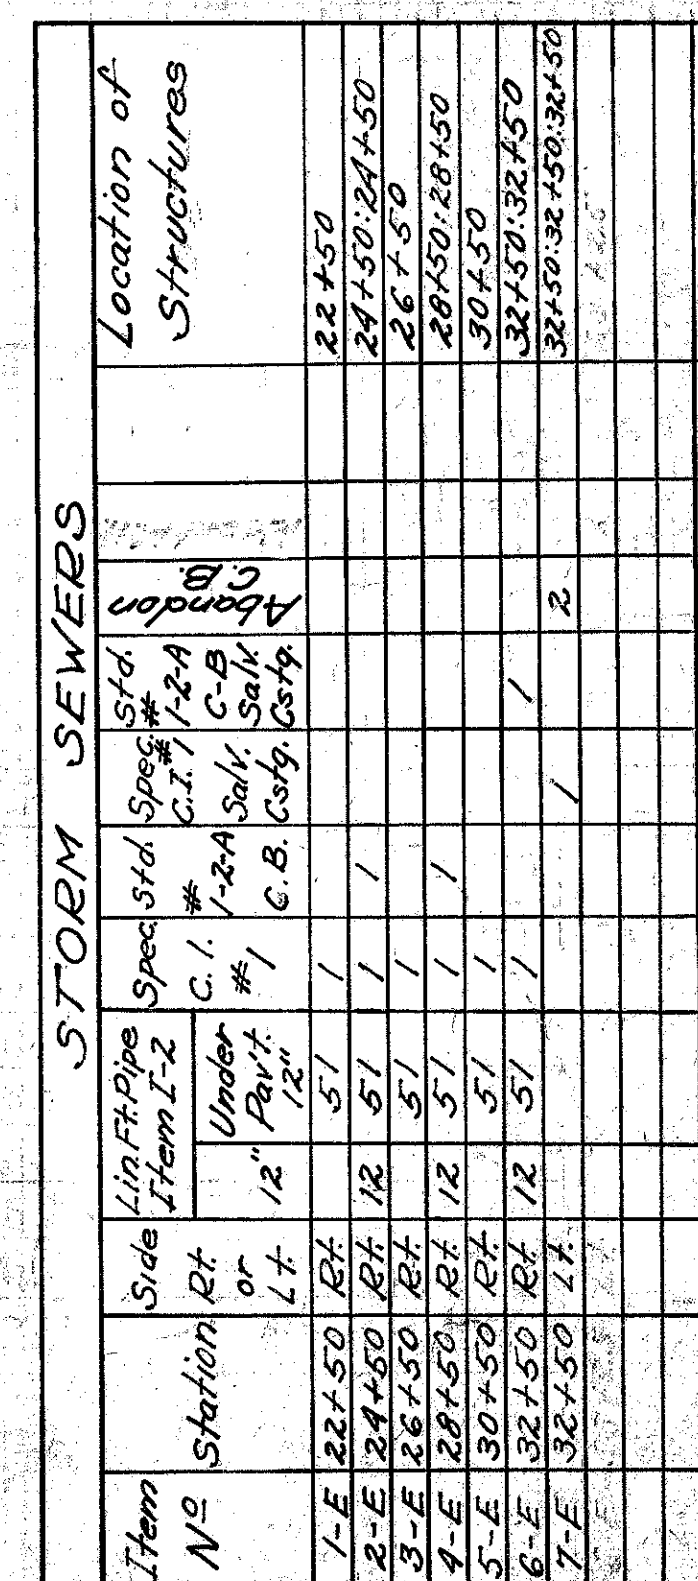 STORM SEWERS
Item Nº Station Side Rt. or Lt. Lin.Ft.Pipe Item I-2 12" Under Pav't. 12" Spec. C.I. #1 Std. # 1-2-A C.B. Spec. # C.I. 1 Salv. Cstg. Std. # 1-2-A C-B Salv. Cstg. Abandon C.B. Location of Structures
1-E 22+50 Rt. 51 1 22+50
2-E 24+50 Rt. 12 51 1 1 24+50:24+50
3-E 26+50 Rt. 51 1 26+50
4-E 28+50 Rt. 12 51 1 1 28+50:28+50
5-E 30+50 Rt. 51 1 30+50
6-E 32+50 Rt. 12 51 1 1 32+50:32+50
7-E 32+50 Lt. 1 2 32+50:32+50:32+50